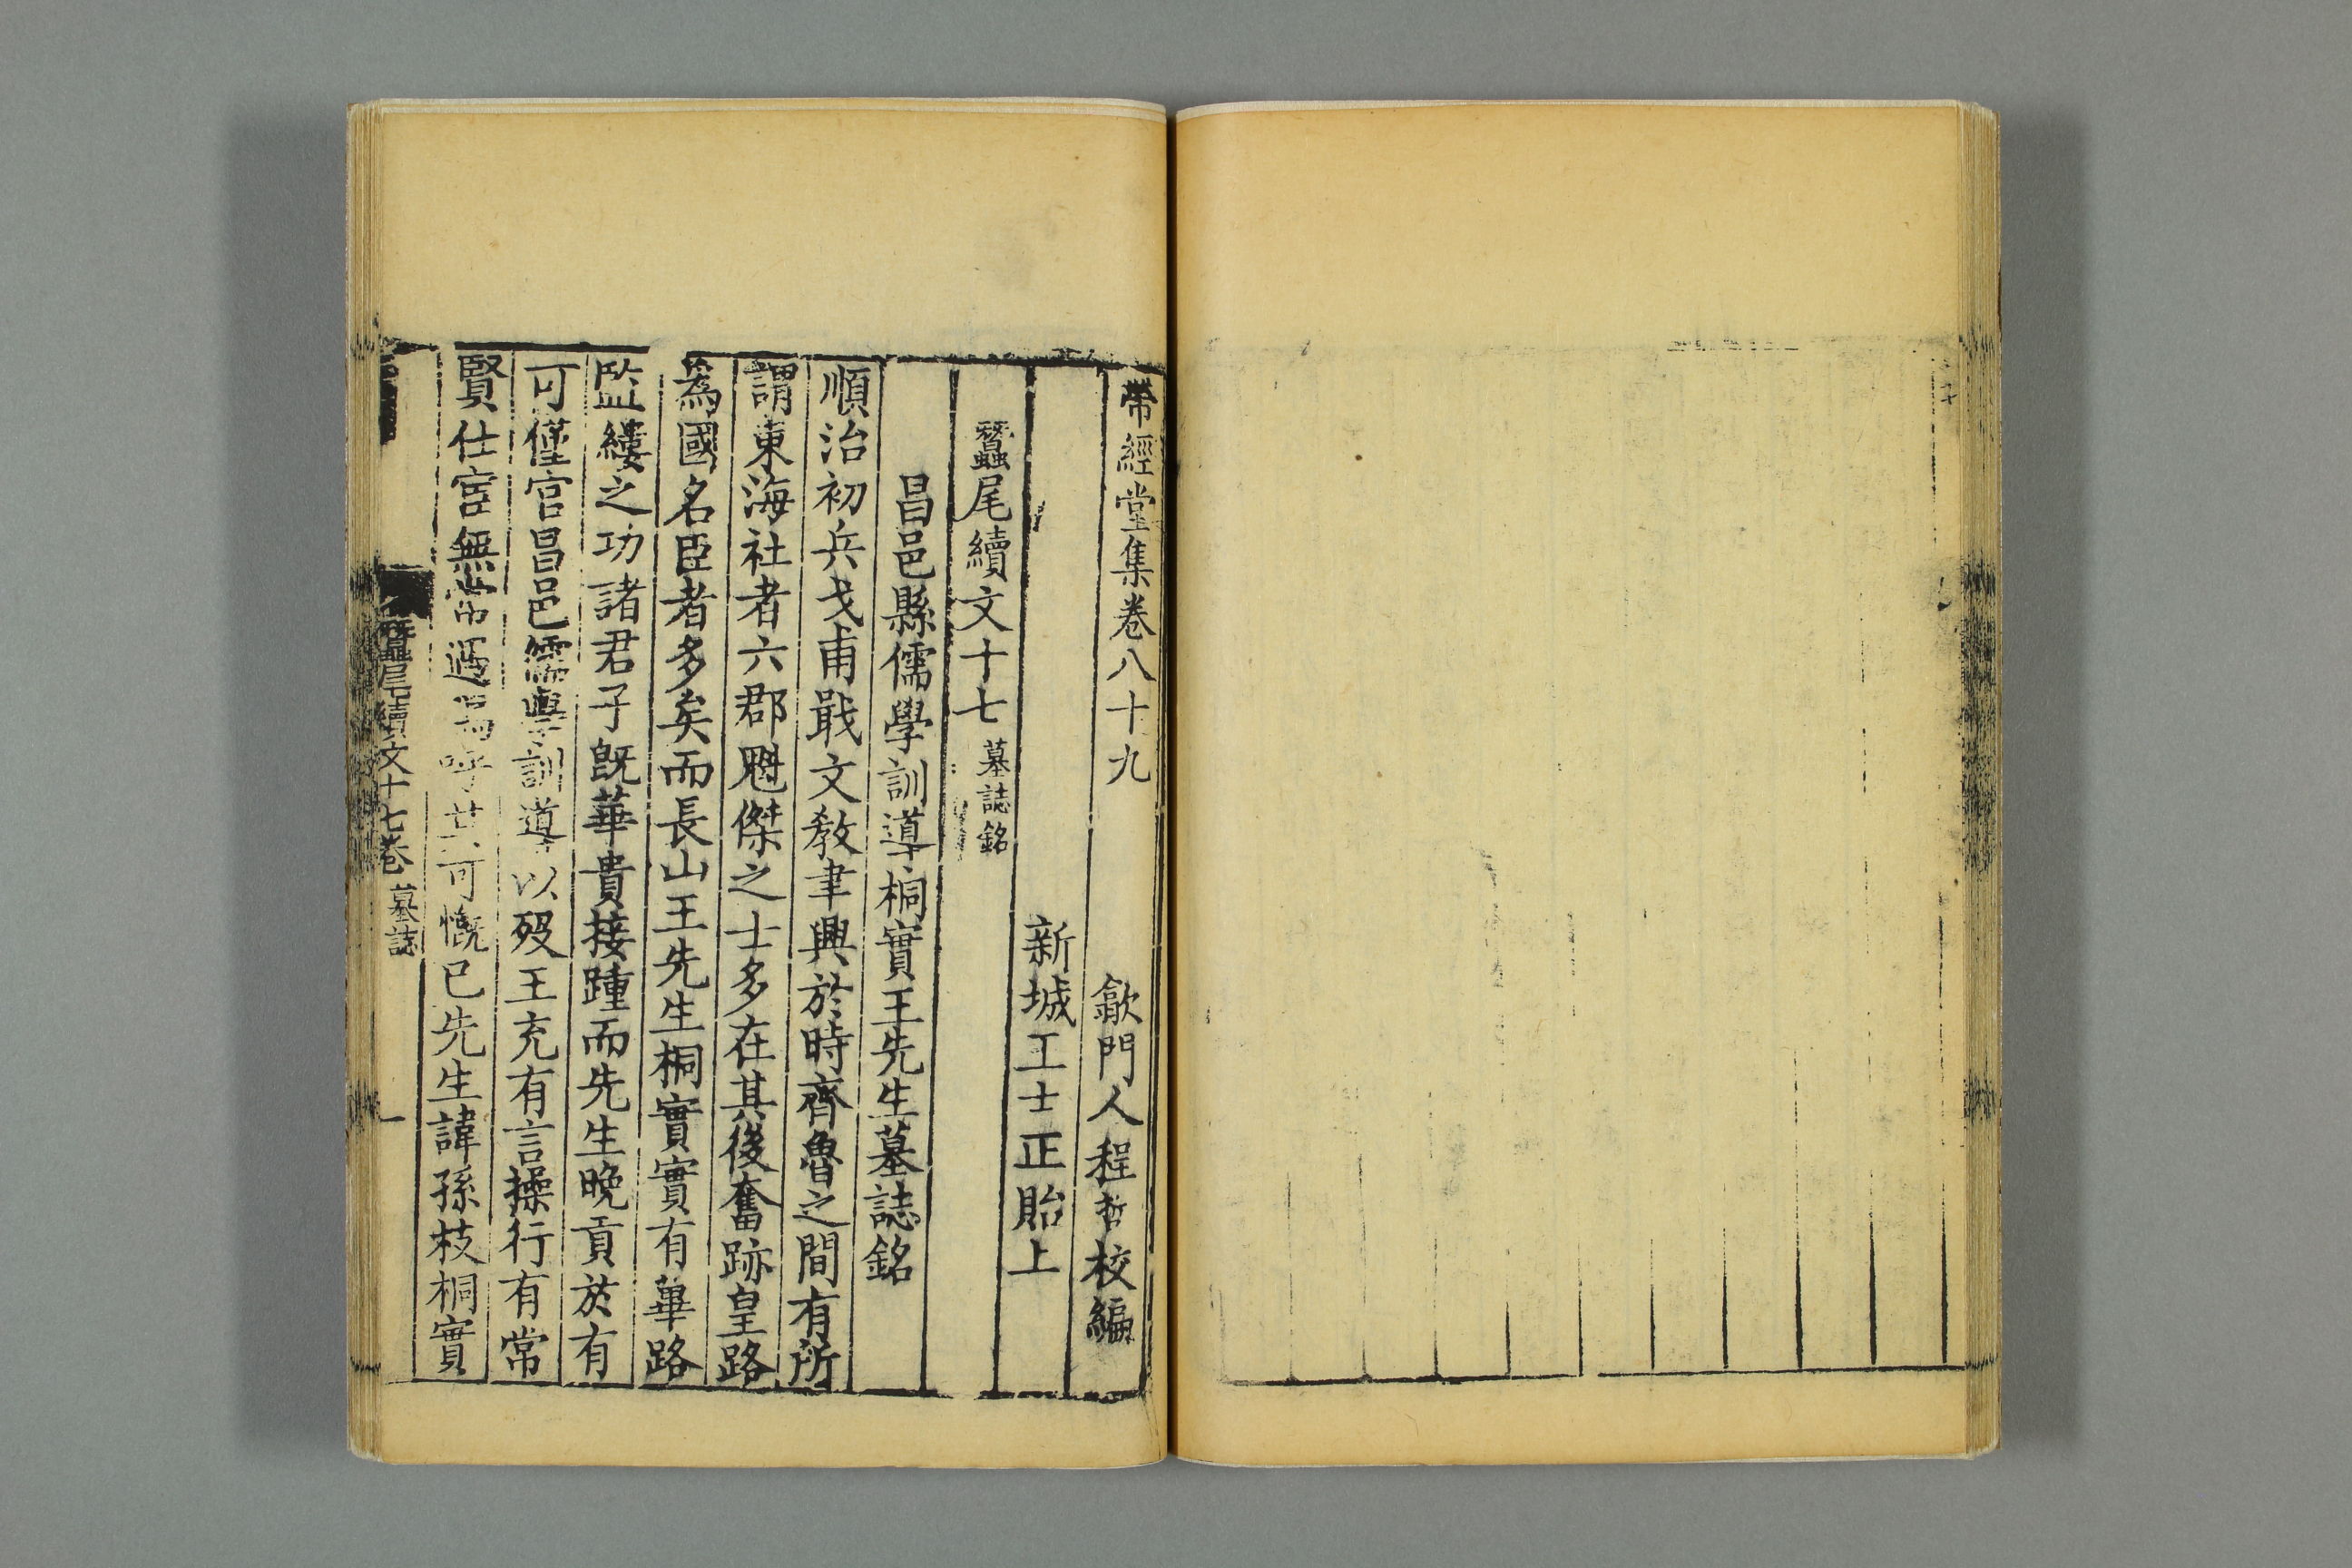 帶經堂集卷八十九
歙門人程哲校編
新城王士正貽上
蠶尾續文十七 墓誌銘
昌邑縣儒學訓導桐實王先生墓誌銘
順治初兵戈甫戢文教聿興於時齊魯之間有所
謂東海社者六郡魁傑之士多在其後奮跡皇路
為國名臣者多矣而長山王先生桐實實有蓽路
監縷之功諸君子旣華貴接踵而先生晚貢於有
可僅官昌邑儒學訓導以歿王充有言操行有常
賢仕宦無常遇嗚呼其可慨已先生諱孫枝桐實
蠶尾續文十七卷 墓誌 一